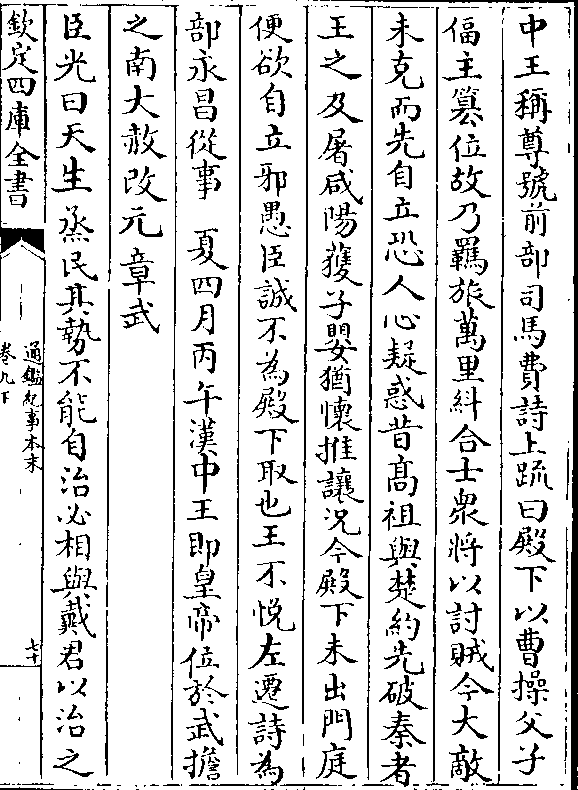 中王稱尊號前部司馬費詩上疏曰殿下以曹操父子
偪主簒位故乃羈旅萬里糾合士衆將以討賊今大敵
未克而先自立恐人心疑惑昔髙祖與楚約先破秦者
王之及屠咸陽獲子嬰猶懷推讓況今殿下未出門庭
便欲自立邪愚臣誠不為殿下取也王不悅左遷詩為
部永昌從事　夏四月丙午漢中王即皇帝位於武擔
之南大赦改元章武
臣光曰天生烝民其勢不能自治必相與戴君以治之
欽定四庫全書
通鑑紀事本末
卷九下
七十